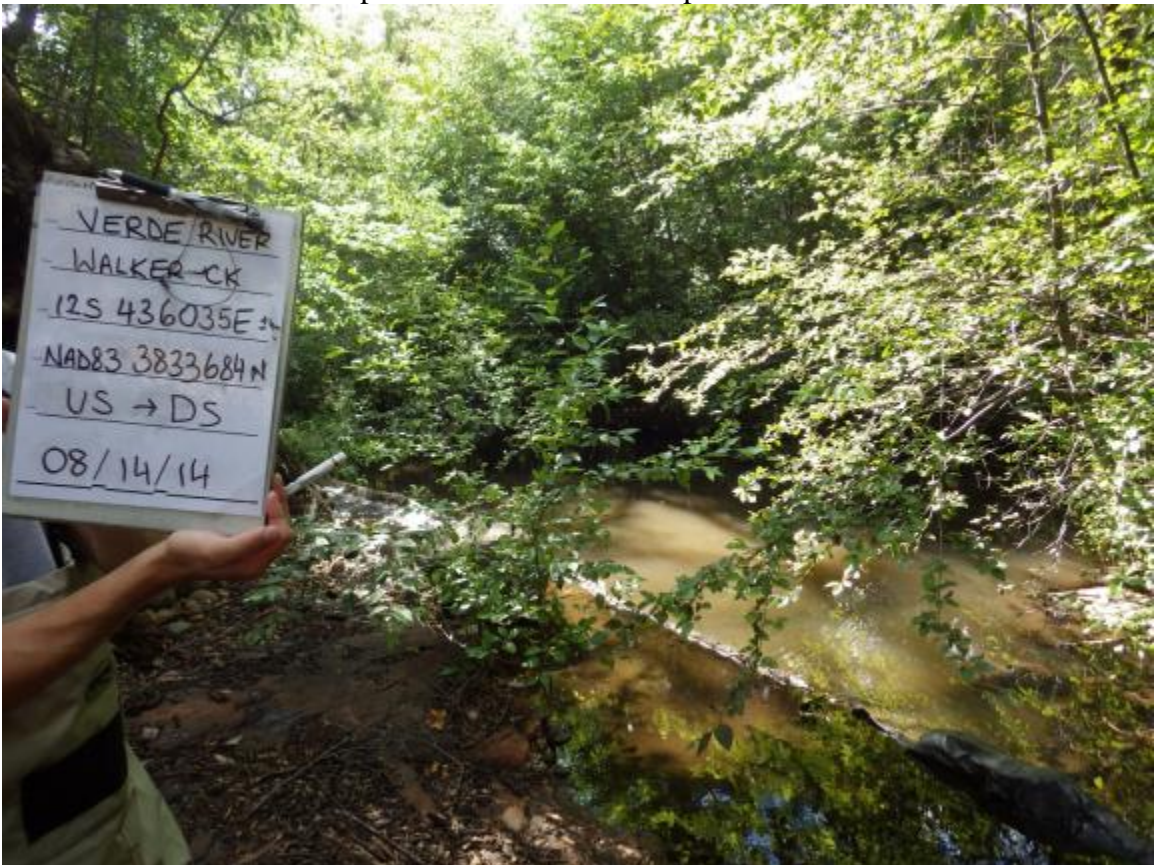 VERDE RIVER
WALKER CK
12S 436035E
NAD83 3833684 N
US → DS
08/14/14